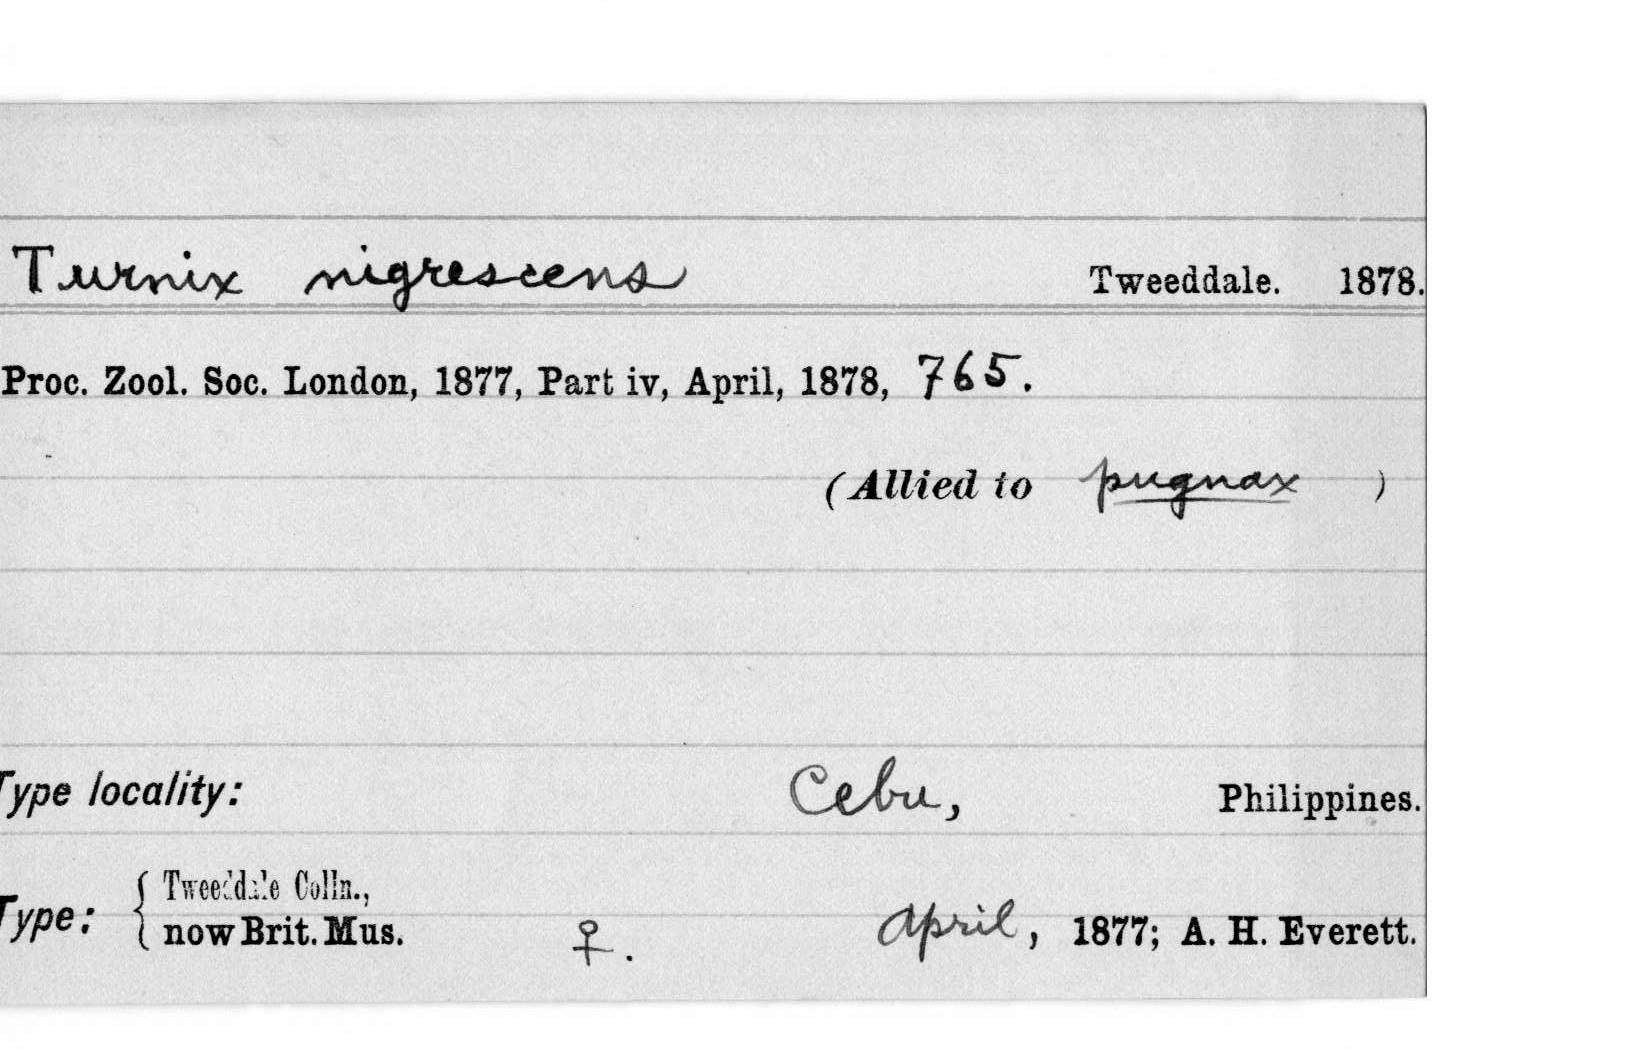 Turnix nigrescens Tweeddale. 1878.
Proc. Zool. Soc. London, 1877, Part iv, April, 1878, 765.
(Allied to pugnax )
Type locality: Cebu, Philippines.
Type: { Tweeddale Colln.,
now Brit. Mus. ♀. April, 1877; A. H. Everett.